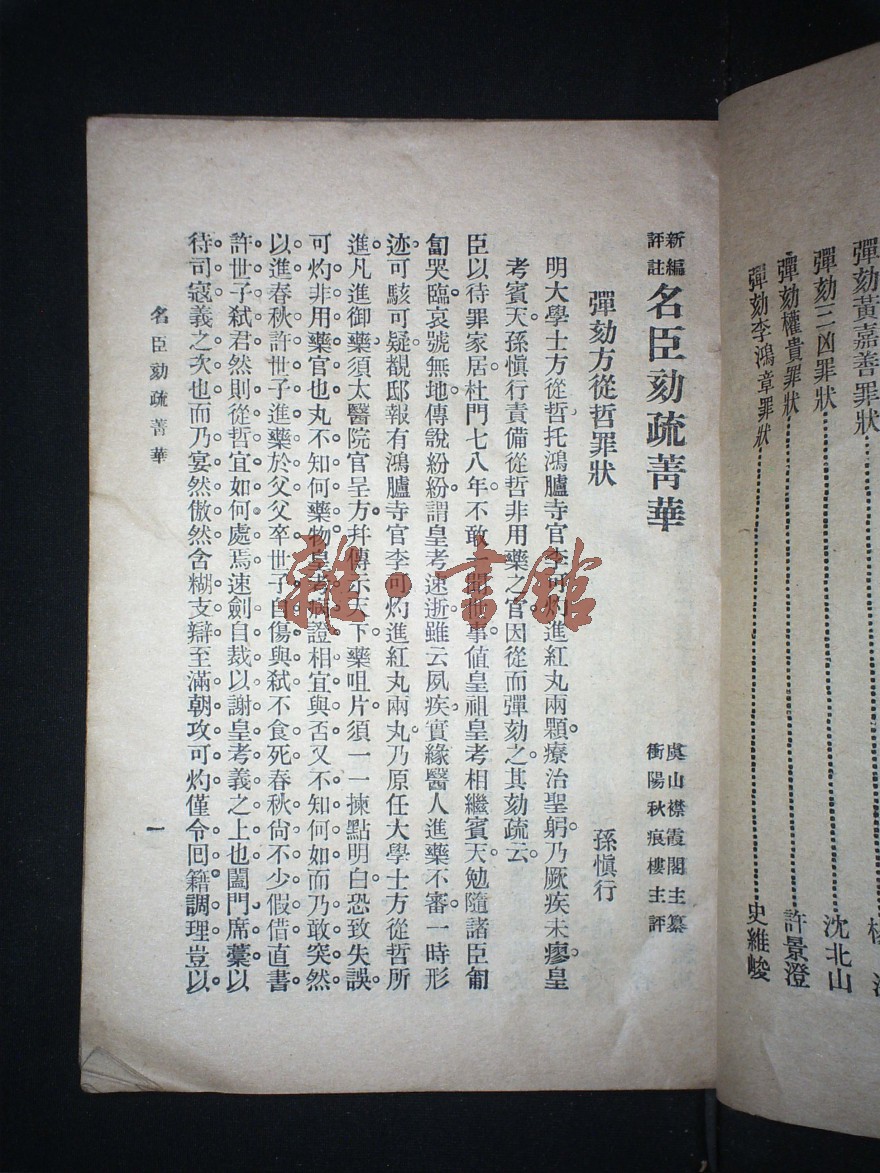 彈劾黃嘉善罪狀
彈劾三凶罪狀 沈北山
彈劾權貴罪狀 許景澄
彈劾李鴻章罪狀 史維峻
新編評註 名臣劾疏菁華
虞山襟霞閣主纂
衡陽秋痕樓主評
彈劾方從哲罪狀 孫愼行
明大學士方從哲托鴻臚寺官李可灼進紅丸兩顆療治聖躬乃厥疾未瘳皇
考賓天孫愼行責備從哲非用藥之官因從而彈劾之其劾疏云
臣以待罪家居杜門七八年不敢聞事値皇祖皇考相繼賓天勉隨諸臣匍
匐哭臨哀號無地傳說紛紛謂皇考速逝雖云夙疾實緣醫人進藥不審一時形
迹可駭可疑觀邸報有鴻臚寺官李可灼進紅丸兩丸乃原任大學士方從哲所
進凡進御藥須太醫院官呈方幷傳示天下藥咀片須一一揀點明白恐致失誤
可灼非用藥官也丸不知何藥物皇考病證相宜與否又不知何如而乃敢突然
以進春秋許世子進藥於父父卒世子自傷與弑不食死春秋尙不少假借直書
許世子弑君然則從哲宜如何處焉速劍自裁以謝皇考義之上也闔門席藁以
待司寇義之次也而乃宴然傲然含糊支辯至滿朝攻可灼僅令囘籍調理豈以
名臣劾疏菁華
一
雜書館